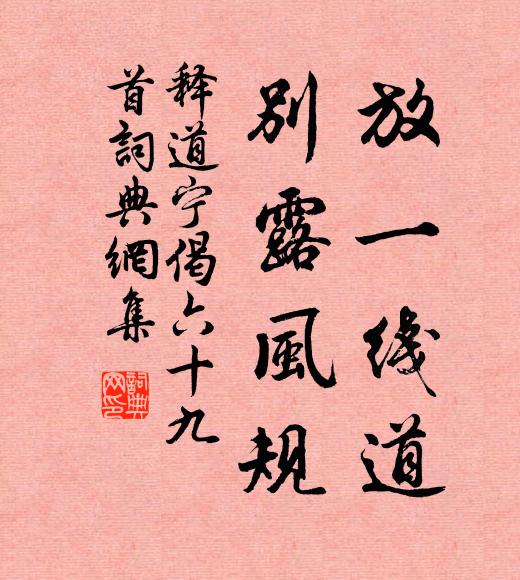 放一线道
别露風规
释道宁偈六十九
首詞典網集
詞典网印